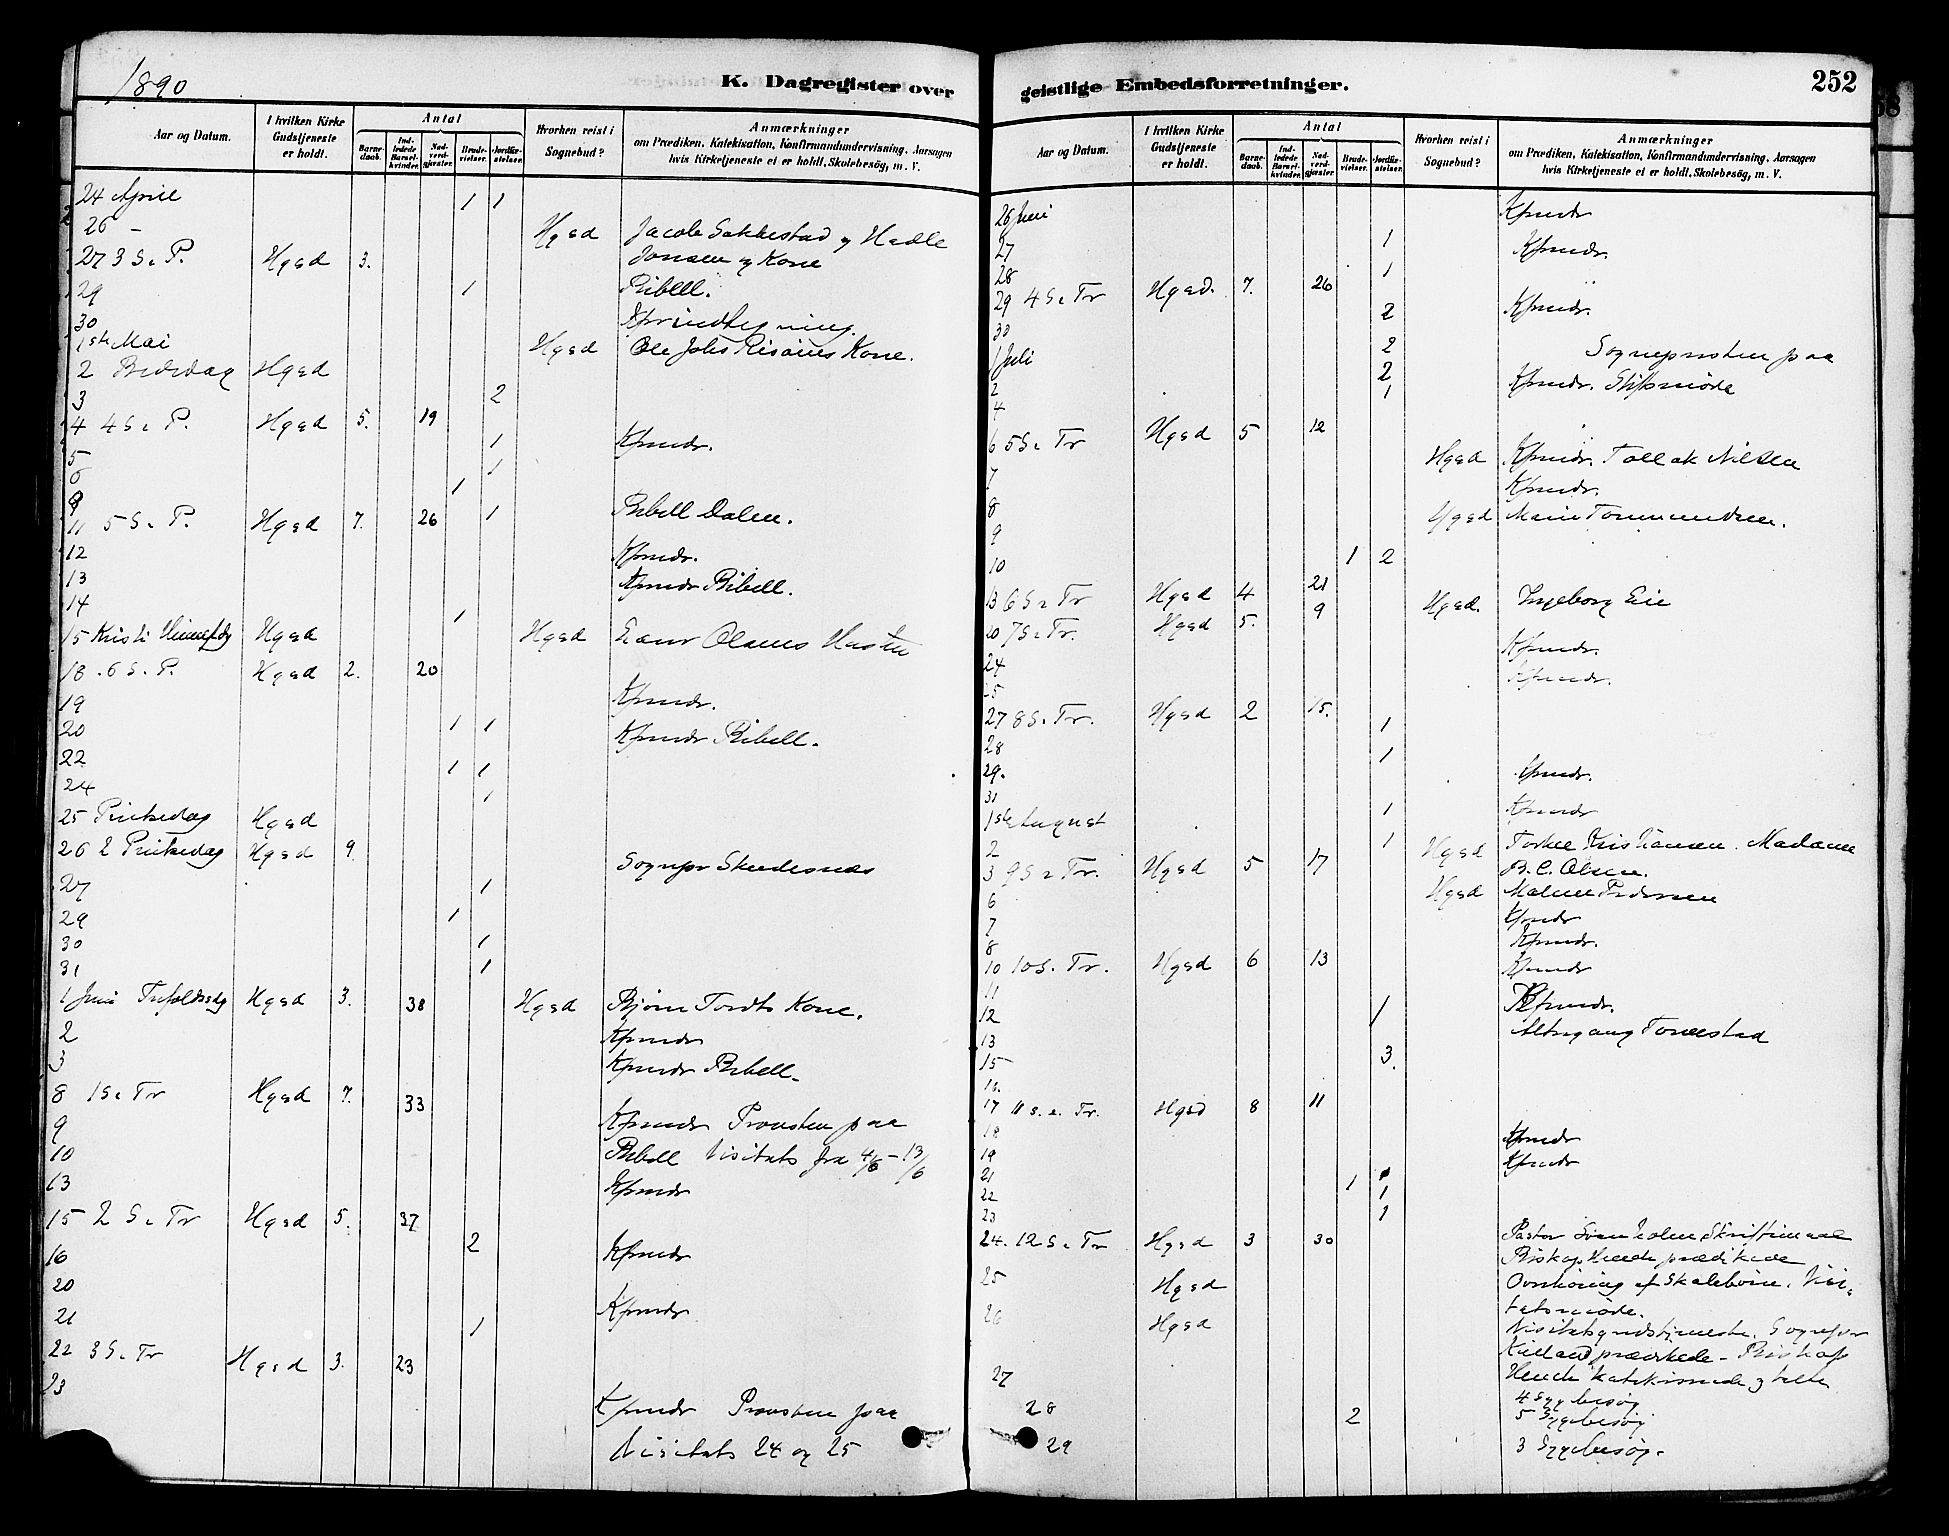 1890
K. Dagregister over
Aar og Datum. I hvilken Kirke Gudstjeneste er holdt. Antal Barnedaab. Indledede Barselkvinder. Nadverdgjæster. Brudevielser. Jordfæstelser. Hvorhen reist i Sognebud? Anmærkninger om Prædiken, Katekisation, Konfirmandundervisning, Aarsagen hvis Kirketjeneste ei er holdt, Skolebesög, m. V.
24 April 1 1
26 - Hgsd Jacob Sakkestad og Helle
27 3 S. e. P. Hgsd 3. Jonsen og Kone
29 1 Bibell.
30 Kfrindtegning.
1ste Mai Hgsd Ole Johs Kone.
2 Bededag Hgsd
3 2
4 4 S. e. P. Hgsd 5. 19
5 1 Kfrmdr.
6 1
9 1
11 5 S. e. P. Hgsd 7. 26 1 Bibell Dalen.
12 Kfrmdr.
13 Kfrmdr Bibell.
14 1
15 Kristi Himmelfdg Hgsd Hgsd Olsens
18. 6 S. e. P. Hgsd 2. 20
19 Kfrmdr.
20 1 1 Kfrmdr Bibell.
22 1 1
24 1
25 Pintsedag Hgsd
26 2 Pintsedag Hgsd 9. Sognepr Skudesnæs
27 1
29 1
30 1
31 1
1 Juni Trefoldsdg Hgsd 3. 38 Hgsd Bjørn Tordts Kone.
2 Kfrmdr
3 Kfrmdr Bibell.
8 1 S. e. Tr Hgsd 7. 33
9 Kfrmdr Provsten paa
10 Bibell Visitats fra 4/6 - 13/6
13 Kfrmdr
15 2 S. e. Tr Hgsd 5. 37
16 2 Kfrmdr
20
21 1 Kfrmdr
22 3 S. e. Tr Hgsd 3. 23
23 Kfrmdr Provsten paa
Visitats 24 og 25
geistlige Embedsforretninger.
252
Aar og Datum. I hvilken Kirke Gudstjeneste er holdt. Antal Barnedaab. Indledede Barselkvinder. Nadverdgjæster. Brudevielser. Jordfæstelser. Hvorhen reist i Sognebud? Anmærkninger om Prædiken, Katekisation, Konfirmandundervisning, Aarsagen hvis Kirketjeneste ei er holdt, Skolebesög, m. V.
26 Juni Kfrmdr
27 1 Kfrmdr.
28 1
29 4 S. e. Tr Hgsd. 7. 26
30 2 Kfrmdr.
1 Juli 2 Sognepresten paa
2 2 Kfrmdr. Stiftsmöde
4 1
6 5 S. e. Tr Hgsd 5 12
7 Hgsd Kfrmdr. Tollak Nilsen
8 Kfrmdr.
9 Hgsd Marie Tommundsen.
10 1 2
13 6 S. e. Tr Hgsd 4 21 Hgsd. Ingeborg Eie
20 7 S. e. Tr. Hgsd 5. 9
24 Kfrmdr.
25 Kfrmdr.
27 8 S. e. Tr. Hgsd 2 15.
28 1
29. 1 Kfrmdr.
31
1ste August 1 Kfrmdr
2 1 Hgsd Torkel Kristiansen. Madame
3 9 S. e. Tr. Hgsd 5 17 B. C. Olsen.
6 Hgsd Malene Pedersen
7 Kfrmdr
8 Kfrmdr.
10 10 S. e. Tr. Hgsd 6 13 Kfrmdr
11 Kfrmdr.
12 1 Altergang Tonnestad
13
15 3.
16.
17 11 S. e. Tr. Hgsd 8 11
18 Kfrmdr
19 Kfrmdr
21 1
22 1
23 1
24. 12 S. e. Tr Hgsd 3 30 Pastor Svenholm Skriftemaal
Biskop Heuch prædikede
25 Hgsd Overhöring af Skolebörn. Visi-
tatsmöde.
26 Hgsd Visitatsgudstjeneste. Sognepr
Kielland prædikede - Biskop
27 Heuch katekiserede og talte
4 Sygebesög
28 2 5 Sygebesög
29 3 Sygebesög.